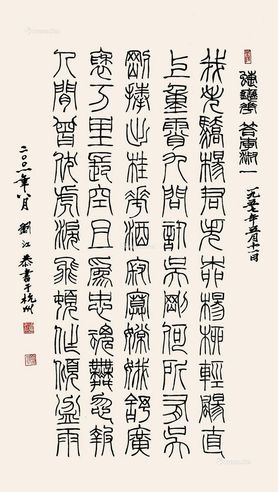 蝶戀花 答李淑一
一九五七年五月十一日
我失驕楊君失柳楊柳輕颺直
上重霄九問訊吳剛何所有吳
剛捧出桂花酒寂寞嫦娥舒廣
袖万里長空且為忠魂舞忽報
人間曾伏虎淚飛頓作傾盆雨
二〇〇一年八月 劉江恭書于杭州